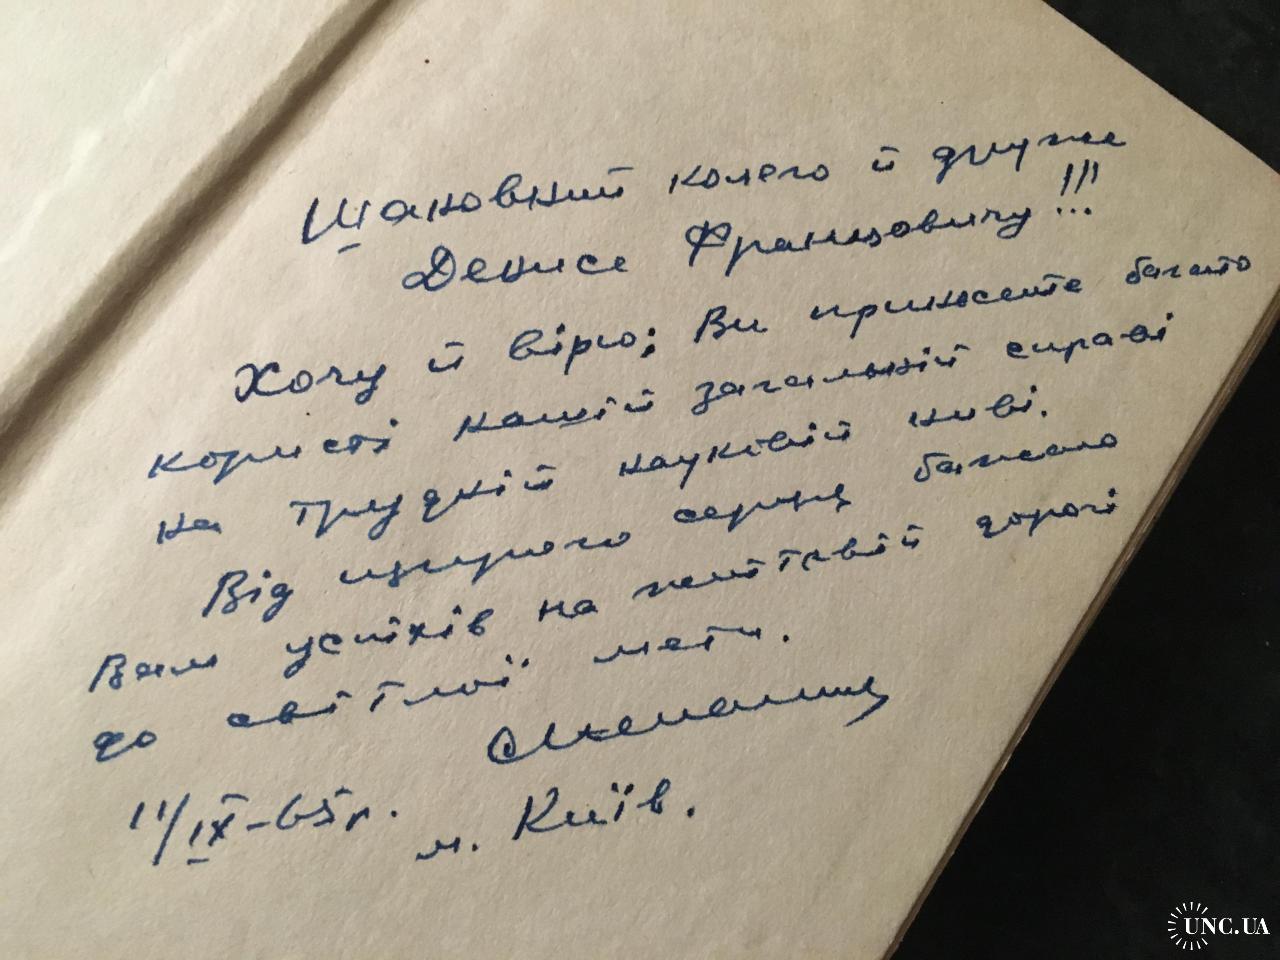 Шановний колего й друже
Денисе Францовичу!!!
Хочу й вірю; Ви принесете багато
користі нашій загальній справі
на трудній науковій ниві.
Від щирого серця бажаю
Вам успіхів на життєвій дорозі
до світлої мети.
11/IX-65р. м. Київ.
UNC.UA